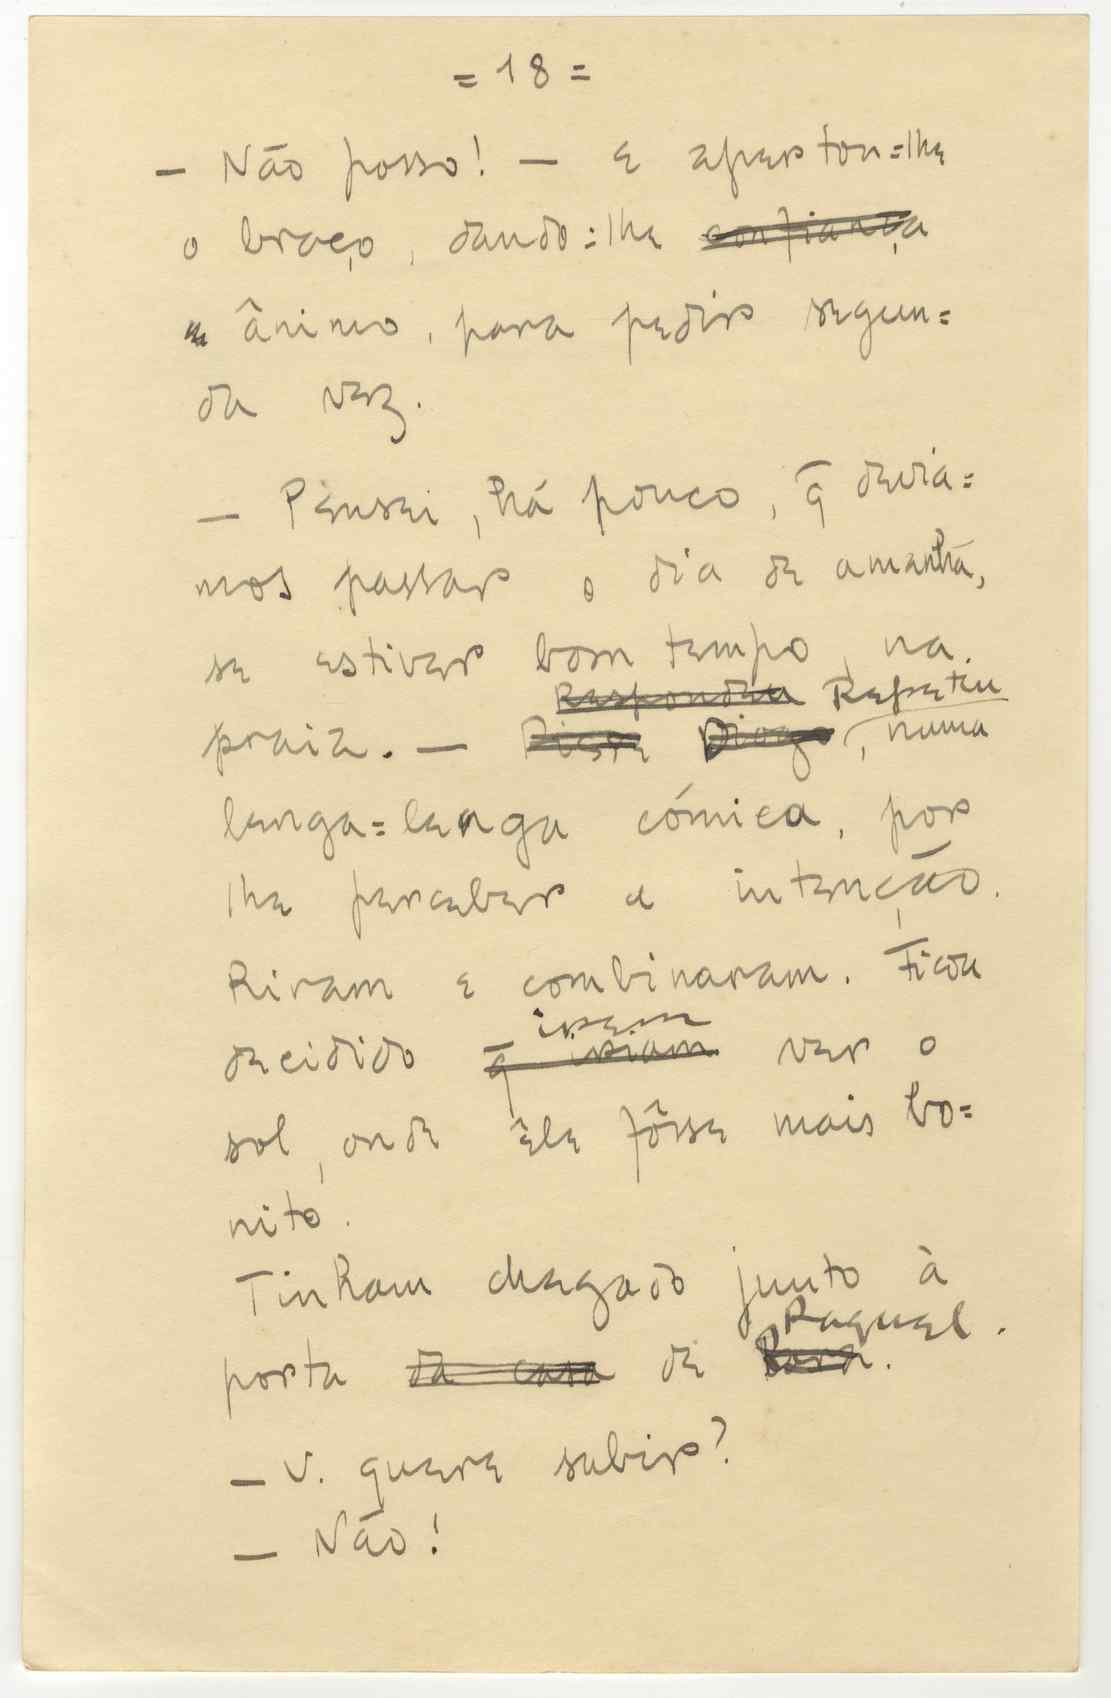 = 18 =
— Não posso! — e apertou=lhe
o braço, dando=lhe confiança
ânimo, para pedir segun=
da vez.
— Pensei, há pouco, q̃ devía=
mos passar o dia de amanhã,
se estiver bom tempo, na
Respondeu Repetiu
praia. — Disse Diogo, numa
lenga=lenga cómica, por
lhe perceber a intenção.
Riram e combinaram. Ficou
irem
decidido q̃ iriam ver o
sol, onde êle fôsse mais bo=
nito.
Tinham chegado junto à
Raquel.
porta da casa de Rosa.
— V. quere subir?
— Não!